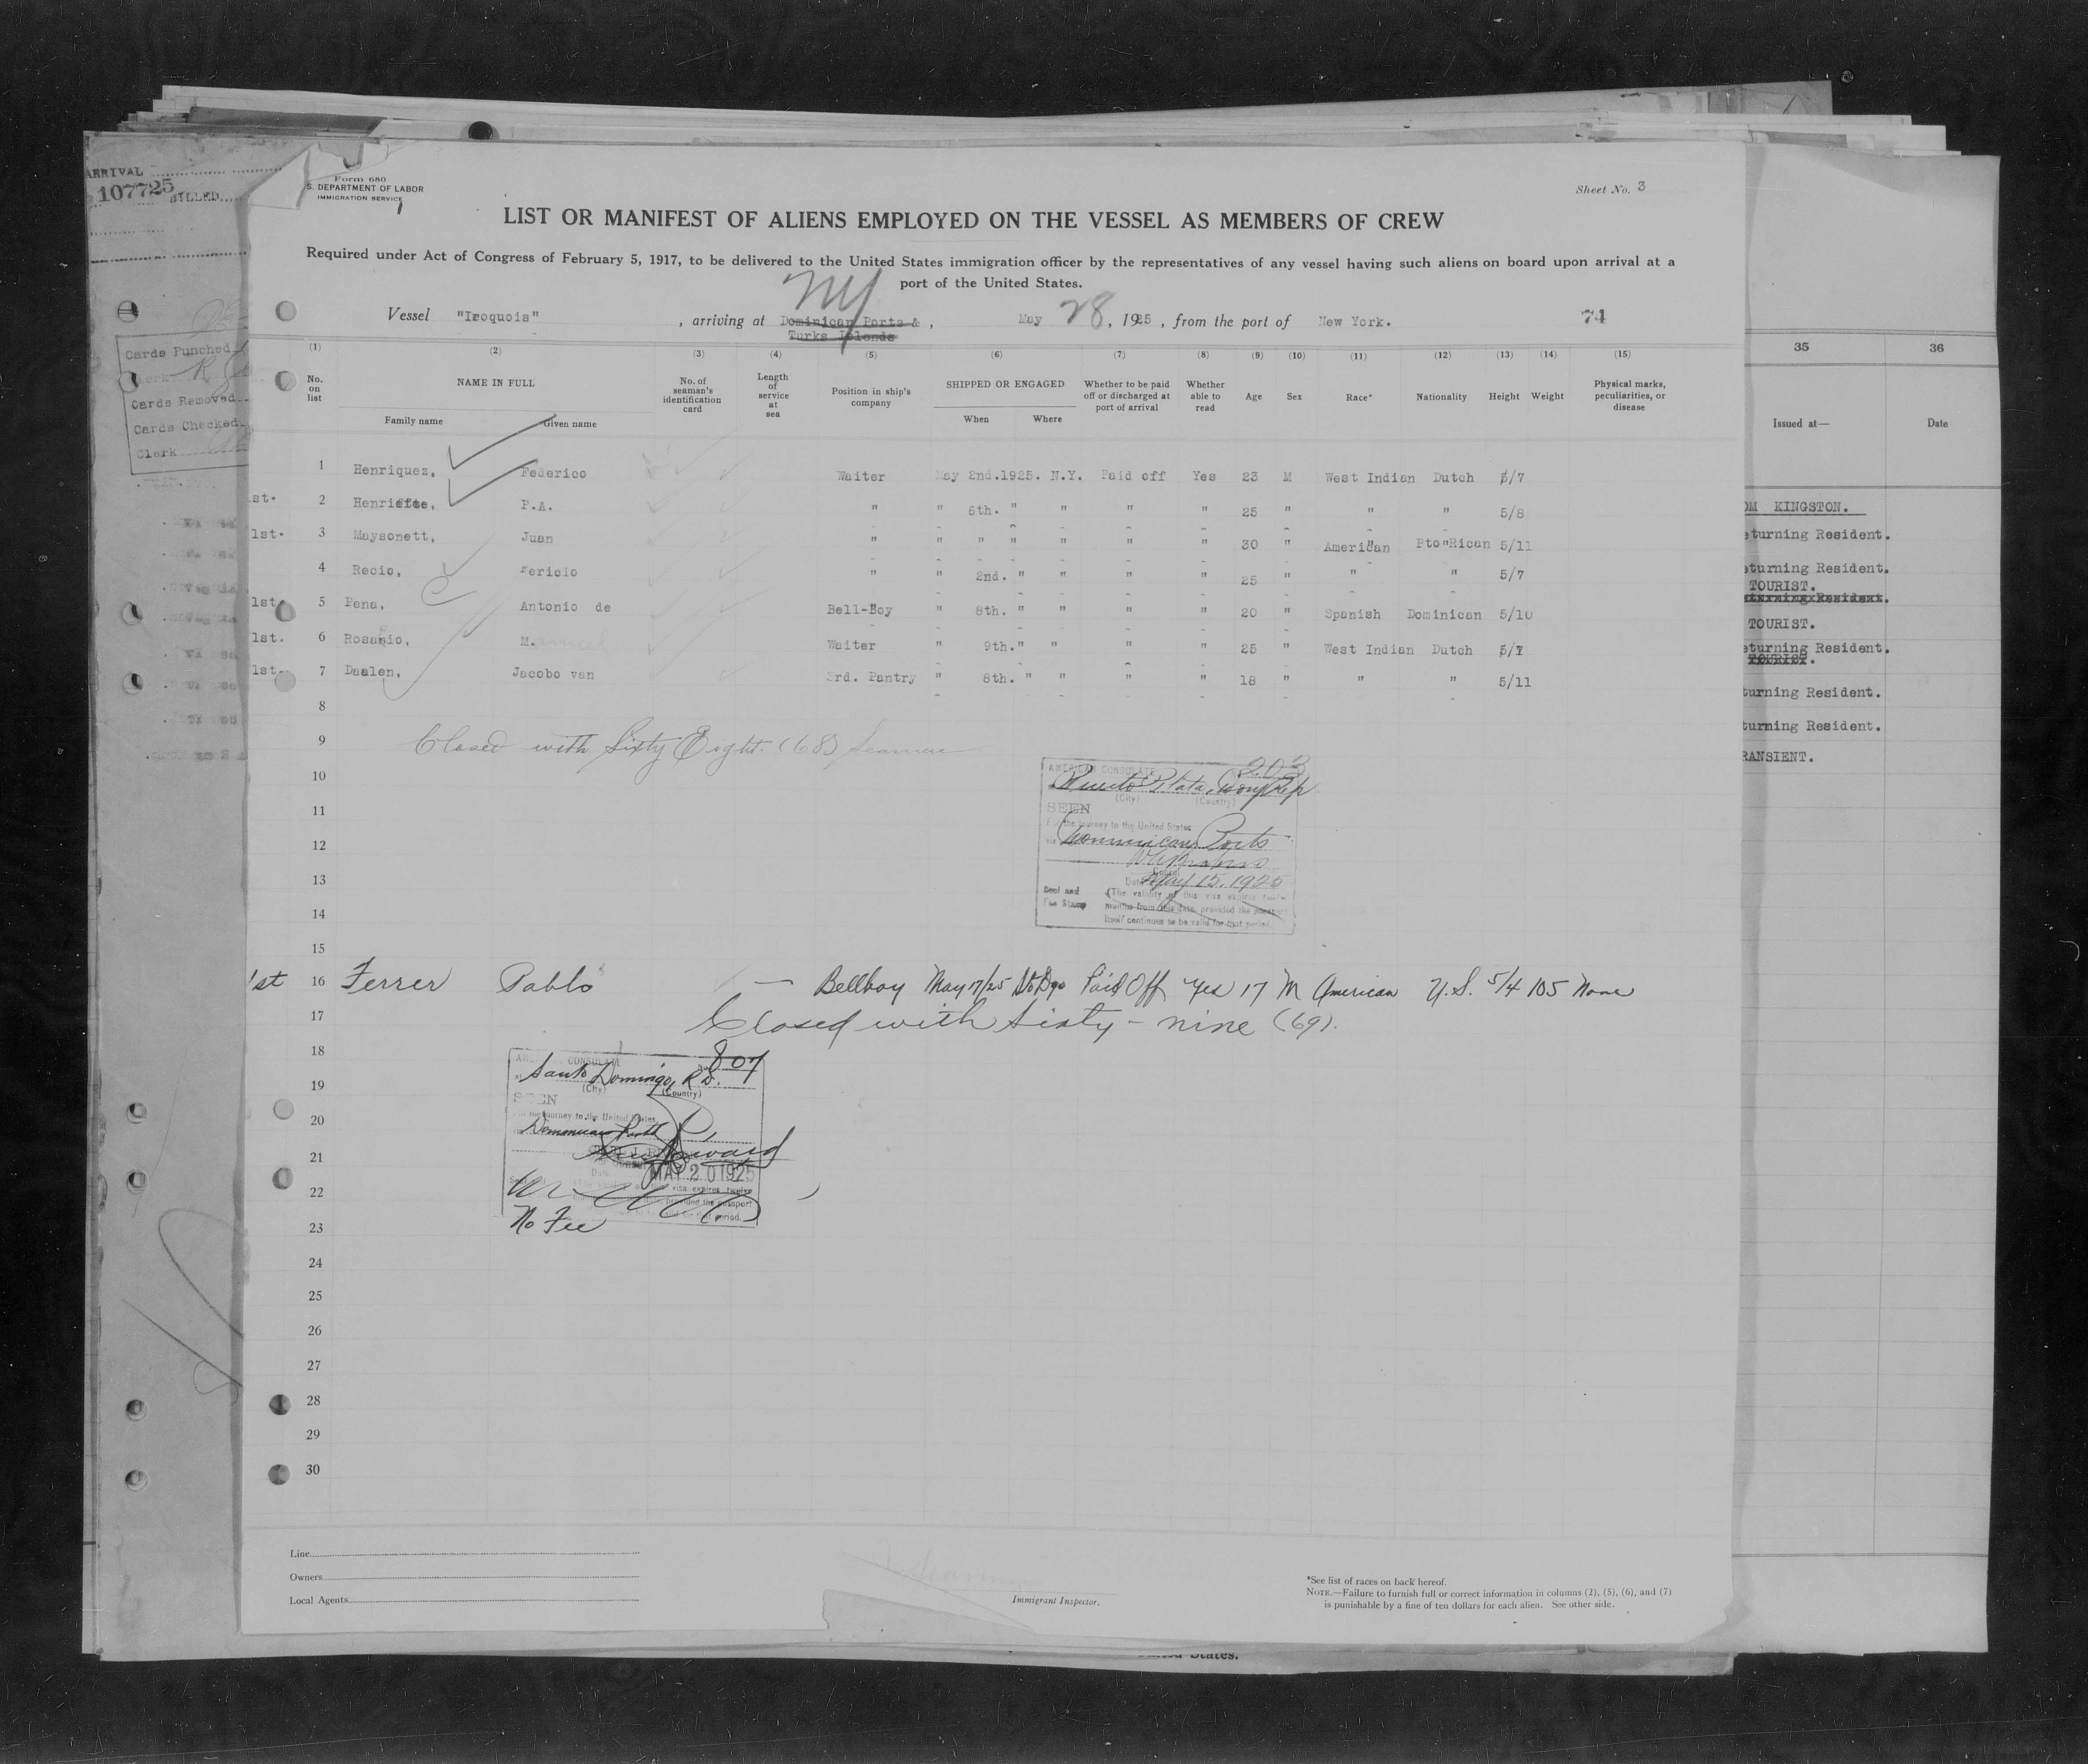 ARRIVAL
107725
BILLED
Cards Punched
Cards Removed
Cards Checked
Clerk
Form 680
S. DEPARTMENT OF LABOR
IMMIGRATION SERVICE
Sheet No. 3
LIST OR MANIFEST OF ALIENS EMPLOYED ON THE VESSEL AS MEMBERS OF CREW
Required under Act of Congress of February 5, 1917, to be delivered to the United States immigration officer by the representatives of any vessel having such aliens on board upon arrival at a
port of the United States.
NY
Vessel "Iroquois", arriving at Dominican Ports & Turks Islands, May 28, 1925, from the port of New York. 74
(1) (2) (3) (4) (5) (6) (7) (8) (9) (10) (11) (12) (13) (14) (15)
No. on list NAME IN FULL No. of seaman's identification card Length of service at sea Position in ship's company SHIPPED OR ENGAGED Whether to be paid off or discharged at port of arrival Whether able to read Age Sex Race* Nationality Height Weight Physical marks, peculiarities, or disease
Family name Given name When Where
1 Henriquez, Federico Waiter May 2nd.1925. N.Y. Paid off Yes 23 M West Indian Dutch 5/7
st. 2 P.A. " " 6th. " " " " 25 " " " 5/8
1st. 3 Maysonett, Juan " " " " " " " 30 " American Pto Rican 5/11
4 Recio, " " 2nd. " " " " 25 " " " 5/7
1st. 5 Pena, Antonio de Bell-Boy " 8th. " " " " 20 " Spanish Dominican 5/10
1st. 6 M. Waiter " 9th. " " " " 25 " West Indian Dutch
1st. 7 Daalen, Jacobo van 3rd. Pantry " 8th. " " " " 18 " " " 5/11
8
9 Closed with Sixty Eight (68) Seamen
10
11
12
13
14
15
AMERICAN CONSULATE 203
Puerto Plata, Dom Rep
(City) (Country)
SEEN
For the journey to the United States
via Dominican Ports
Consul
Date May 15, 1925
Seal and Fee Stamp
(The validity of this visa expires twelve
months from this date, provided the passport
itself continues to be valid for that period.
1st 16 Ferrer Pablo — Bellboy May 17/25 Sto Dgo Paid Off Yes 17 M American U.S. 5/4 105 None
17 Closed with Sixty-nine (69).
18
19
20
21
22
23
24
25
26
27
28
29
30
AMERICAN CONSULATE 807
Santo Domingo, R.D.
(City) (Country)
SEEN
For the journey to the United States
Dominican Ports
MAY 20 1925
visa expires twelve
provided the passport
period.
No Fee
Line
Owners
Local Agents
Immigrant Inspector.
*See list of races on back hereof.
NOTE.—Failure to furnish full or correct information in columns (2), (5), (6), and (7)
is punishable by a fine of ten dollars for each alien. See other side.
35 36
Issued at— Date
OM KINGSTON.
eturning Resident.
eturning Resident.
TOURIST.
TOURIST.
eturning Resident.
TOURIST.
turning Resident.
turning Resident.
RANSIENT.
States.